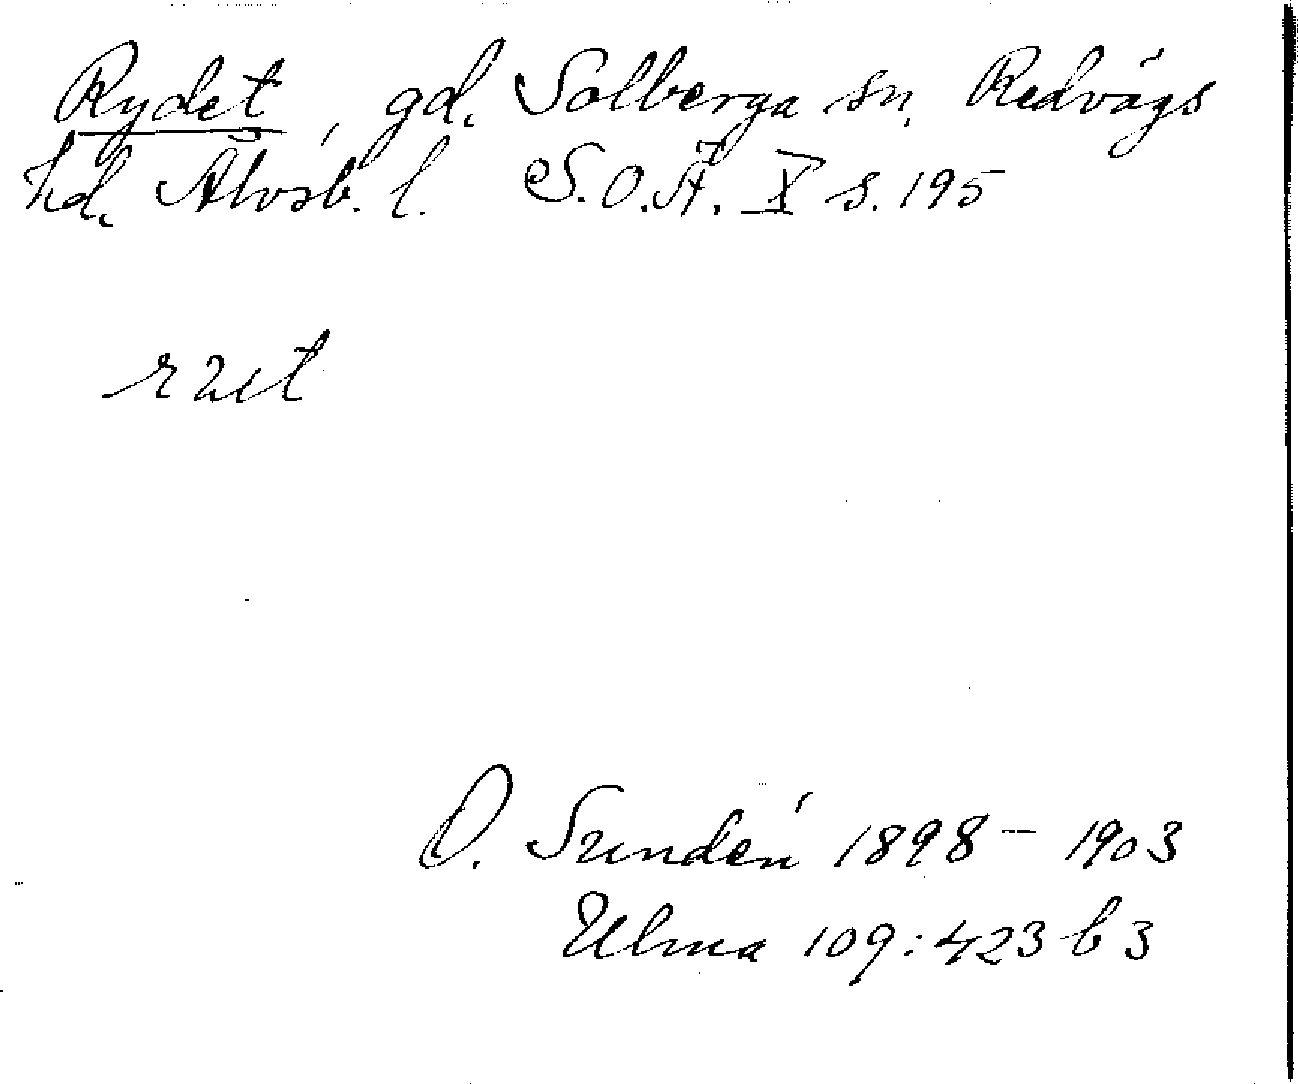 Rydet, gd. Solberga sn, Redvägs
hd. Älvsb. l. S.O.Ä. X s. 195
D. Sundén 1898 – 1903
Ulma 109:423 b 3